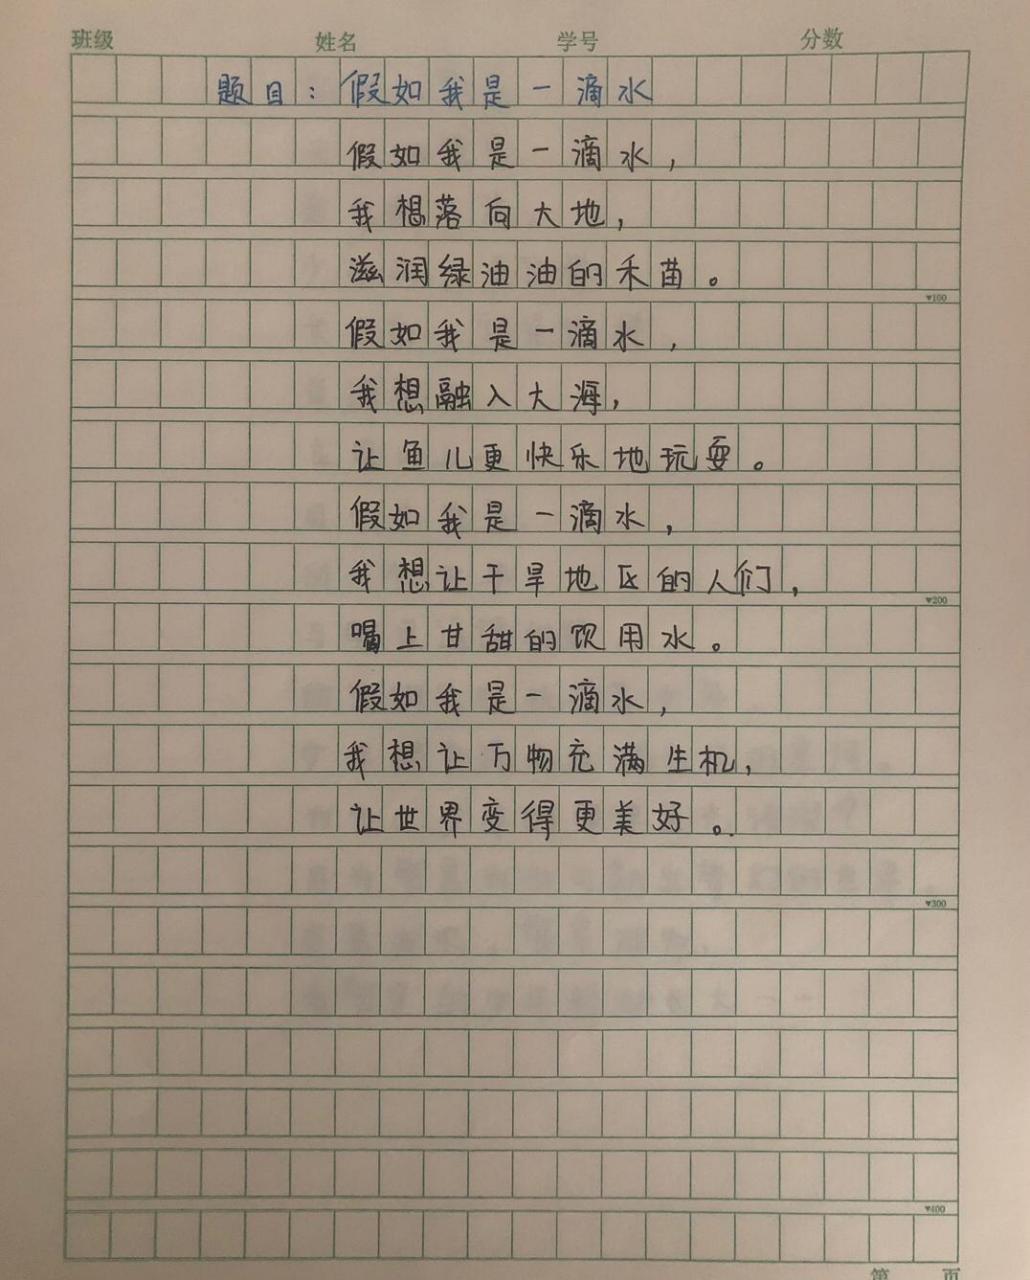 班级 姓名 学号 分数
题目：假如我是一滴水
假如我是一滴水，
我想落向大地，
滋润绿油油的禾苗。
▼100
假如我是一滴水，
我想融入大海，
让鱼儿更快乐地玩耍。
假如我是一滴水，
我想让干旱地区的人们，
▼200
喝上甘甜的饮用水。
假如我是一滴水，
我想让万物充满生机，
让世界变得更美好。
▼300
▼400
第 页